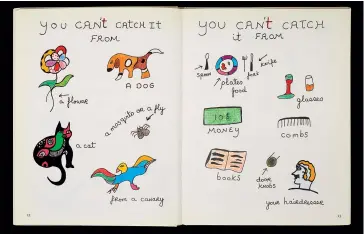 YOU CAN'T CATCH IT
FROM
A DOG
a flower
a mosquito or a fly
a cat
from a canary
YOU CAN'T CATCH
it FROM
spoon
plates
food
fork
knife
glasses
10$
MONEY
combs
books
door
knobs
your hairdresser